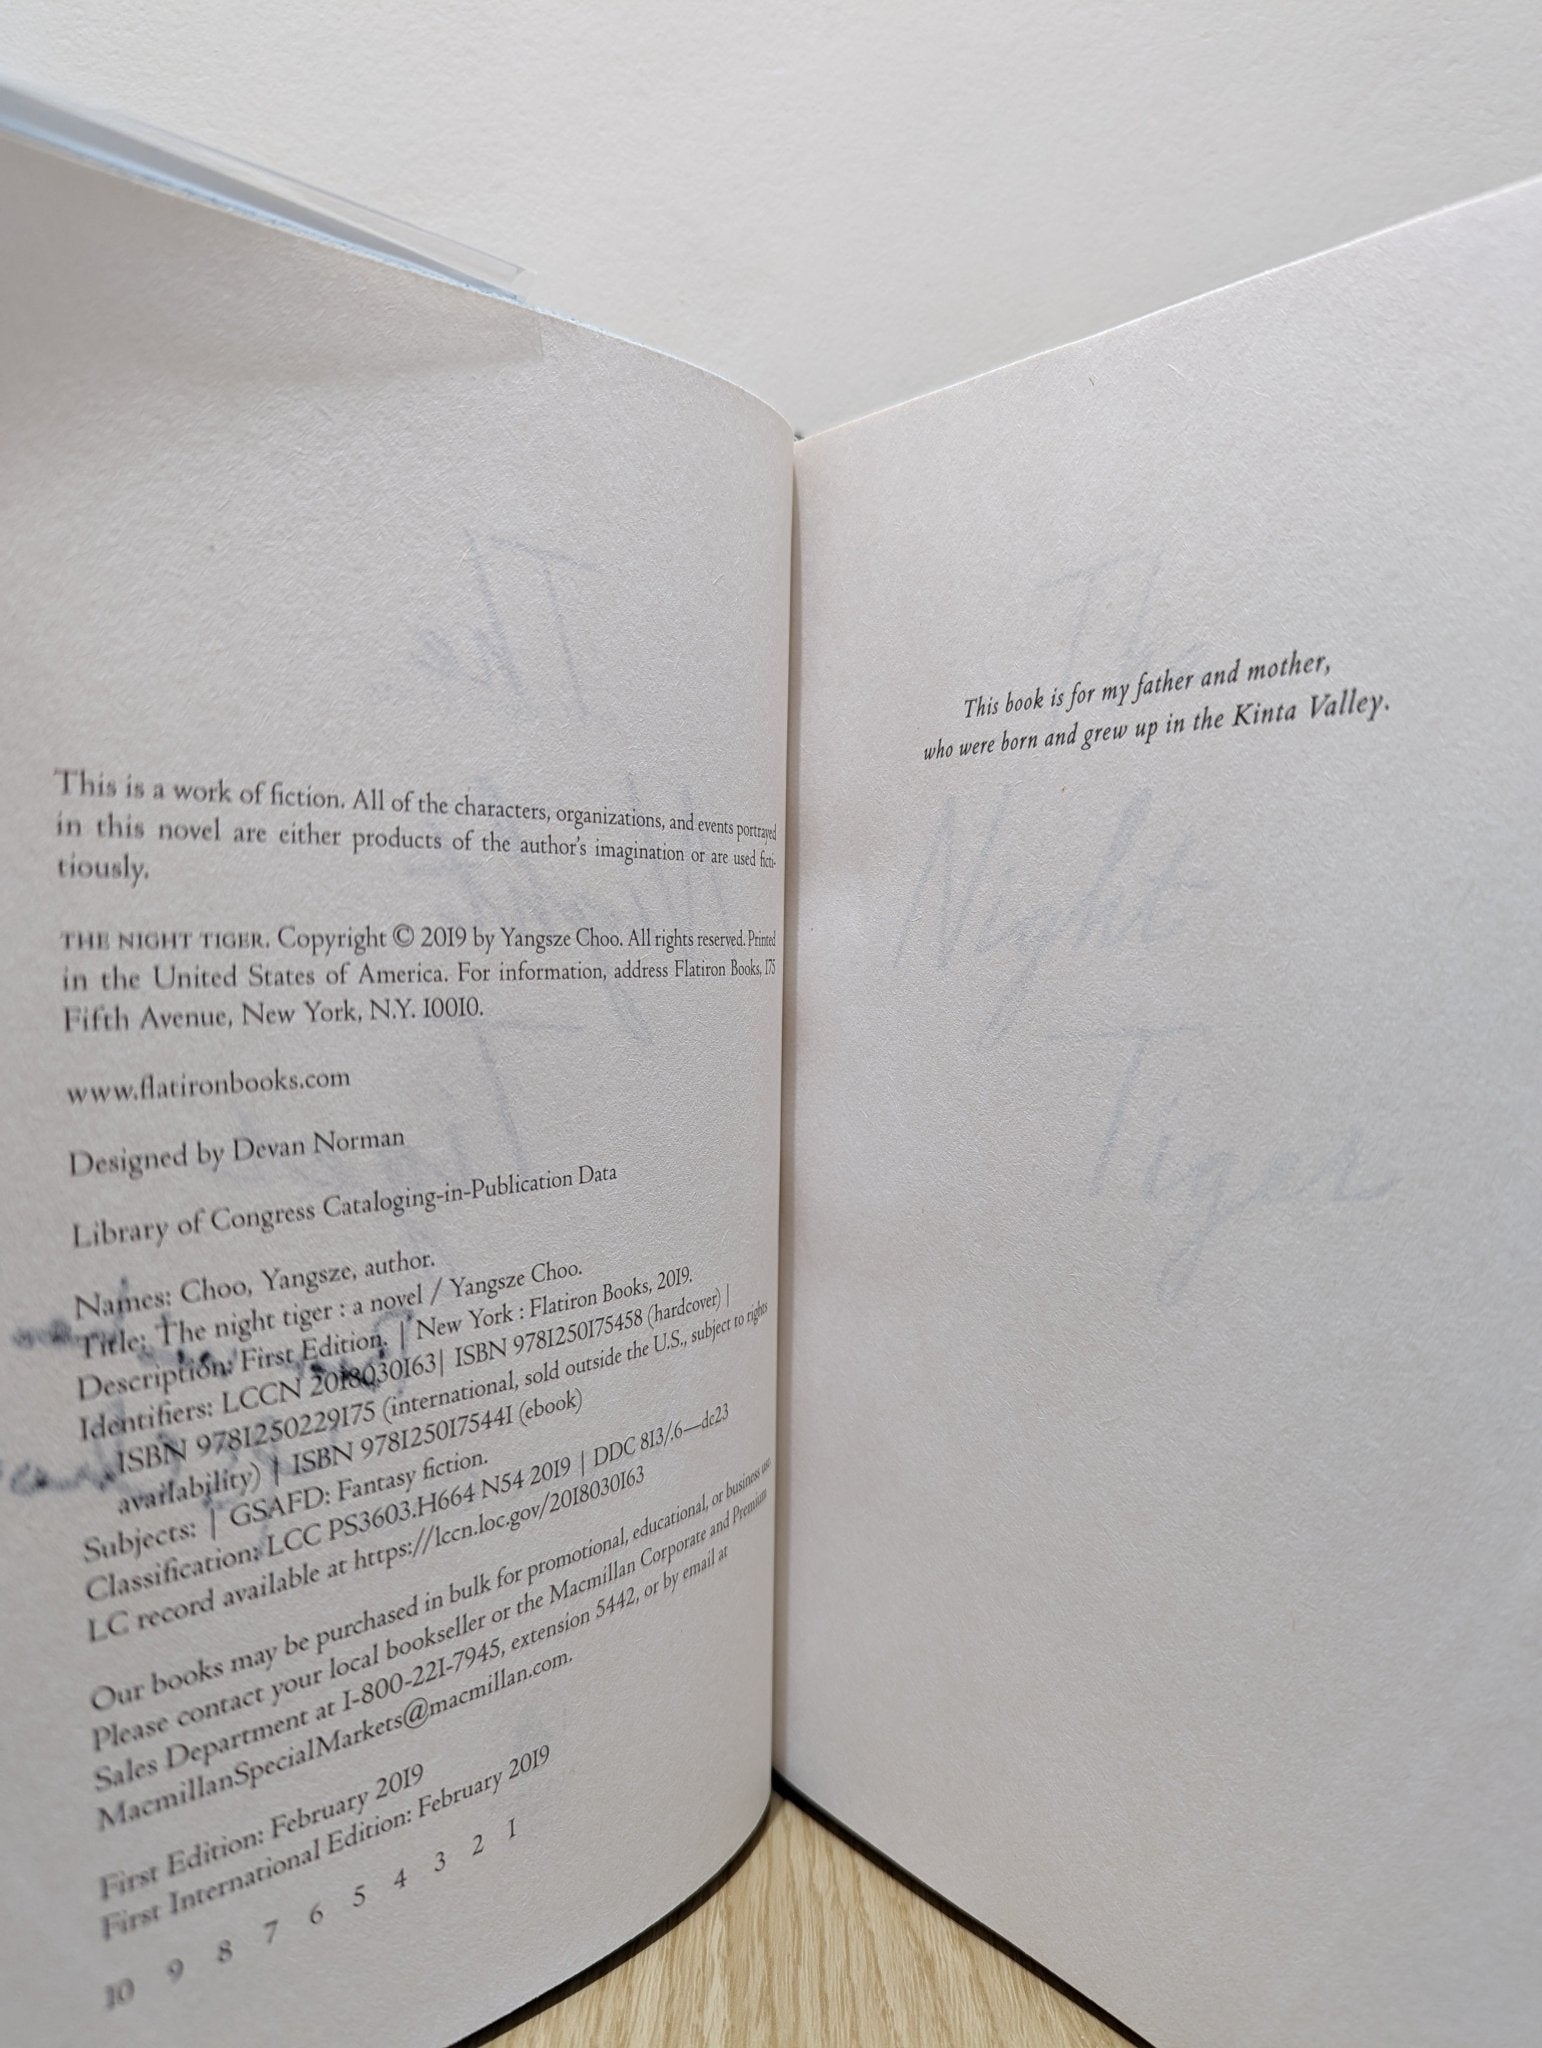 This is a work of fiction. All of the characters, organizations, and events portrayed
in this novel are either products of the author's imagination or are used ficti-
tiously.
THE NIGHT TIGER. Copyright © 2019 by Yangsze Choo. All rights reserved. Printed
in the United States of America. For information, address Flatiron Books, 175
Fifth Avenue, New York, N.Y. 10010.
www.flatironbooks.com
Designed by Devan Norman
Library of Congress Cataloging-in-Publication Data
Names: Choo, Yangsze, author.
Title: The night tiger : a novel / Yangsze Choo.
Description: First Edition. | New York : Flatiron Books, 2019.
Identifiers: LCCN 2018030163| ISBN 9781250175458 (hardcover) |
ISBN 9781250229175 (international, sold outside the U.S., subject to rights
availability) | ISBN 9781250175441 (ebook)
Subjects: | GSAFD: Fantasy fiction.
Classification: LCC PS3603.H664 N54 2019 | DDC 813/.6—dc23
LC record available at https://lccn.loc.gov/2018030163
Our books may be purchased in bulk for promotional, educational, or business use.
Please contact your local bookseller or the Macmillan Corporate and Premium
Sales Department at 1-800-221-7945, extension 5442, or by email at
MacmillanSpecialMarkets@macmillan.com.
First Edition: February 2019
First International Edition: February 2019
10 9 8 7 6 5 4 3 2 1
This book is for my father and mother,
who were born and grew up in the Kinta Valley.
The
Night
Tiger